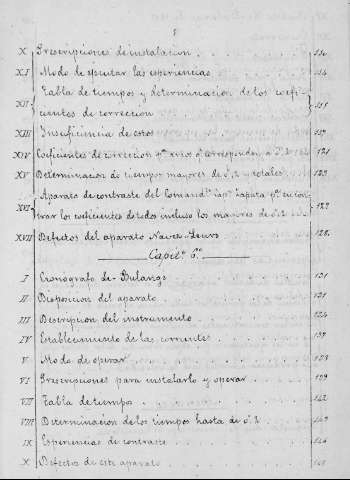 X Prescripciones de instalacion
XI Modo de ejecutar las experiencias 114
Tabla de tiempos y determinacion de los coefi-
XII
cientes de correccion 115
XIII Insuficiencia de estos
XIV Coeficientes de correccion
XV Determinacion de tiempos mayores de 0'',2 y totales 123
Aparato de contraste del Comand.te
XVI
trar los coeficientes de todos incluso los mayores de 0'',2 127
XVII Defectos del aparato Navez-Leurs 128
Capit.o 6.o
I Cronografo de Boulangé 131
II Disposicion del aparato 131
III Descripcion del instrumento 134
IV Establecimiento de las corrientes 137
V Modo de operar 138
VI Prescripciones para instalarlo y operar 139
VII Tabla de tiempos 142
VIII Determinacion de los tiempos hasta de 0'',2 143
IX Experiencias de contraste
X Defectos de este aparato